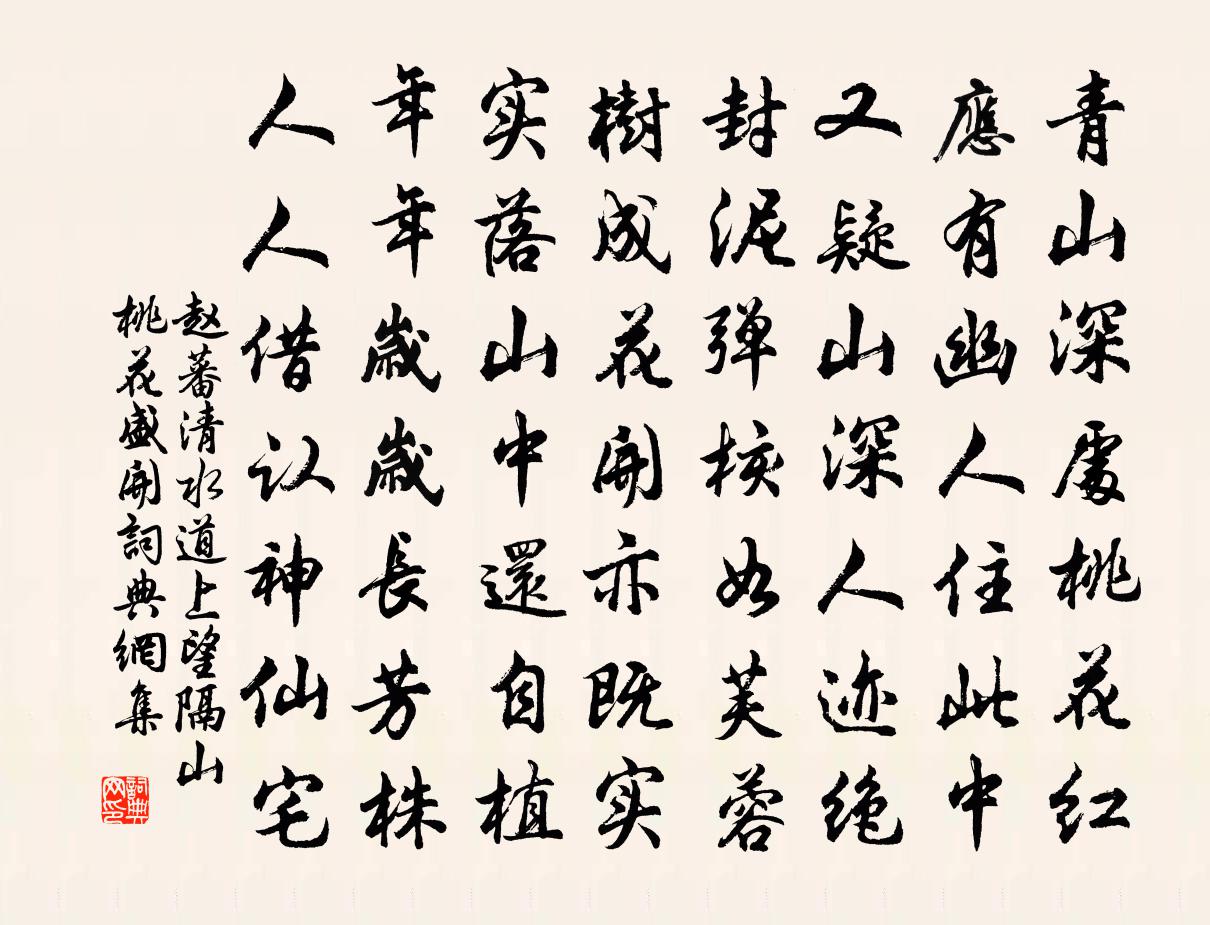 青山深處桃花红
應有幽人住此中
又疑山深人迹绝
封泥弹核如芙蓉
樹成花開亦既实
实落山中還自植
年年歲歲長芳株
人人借认神仙宅
赵蕃清水道上望隔山
桃花盛開詞典網集
詞典
网印